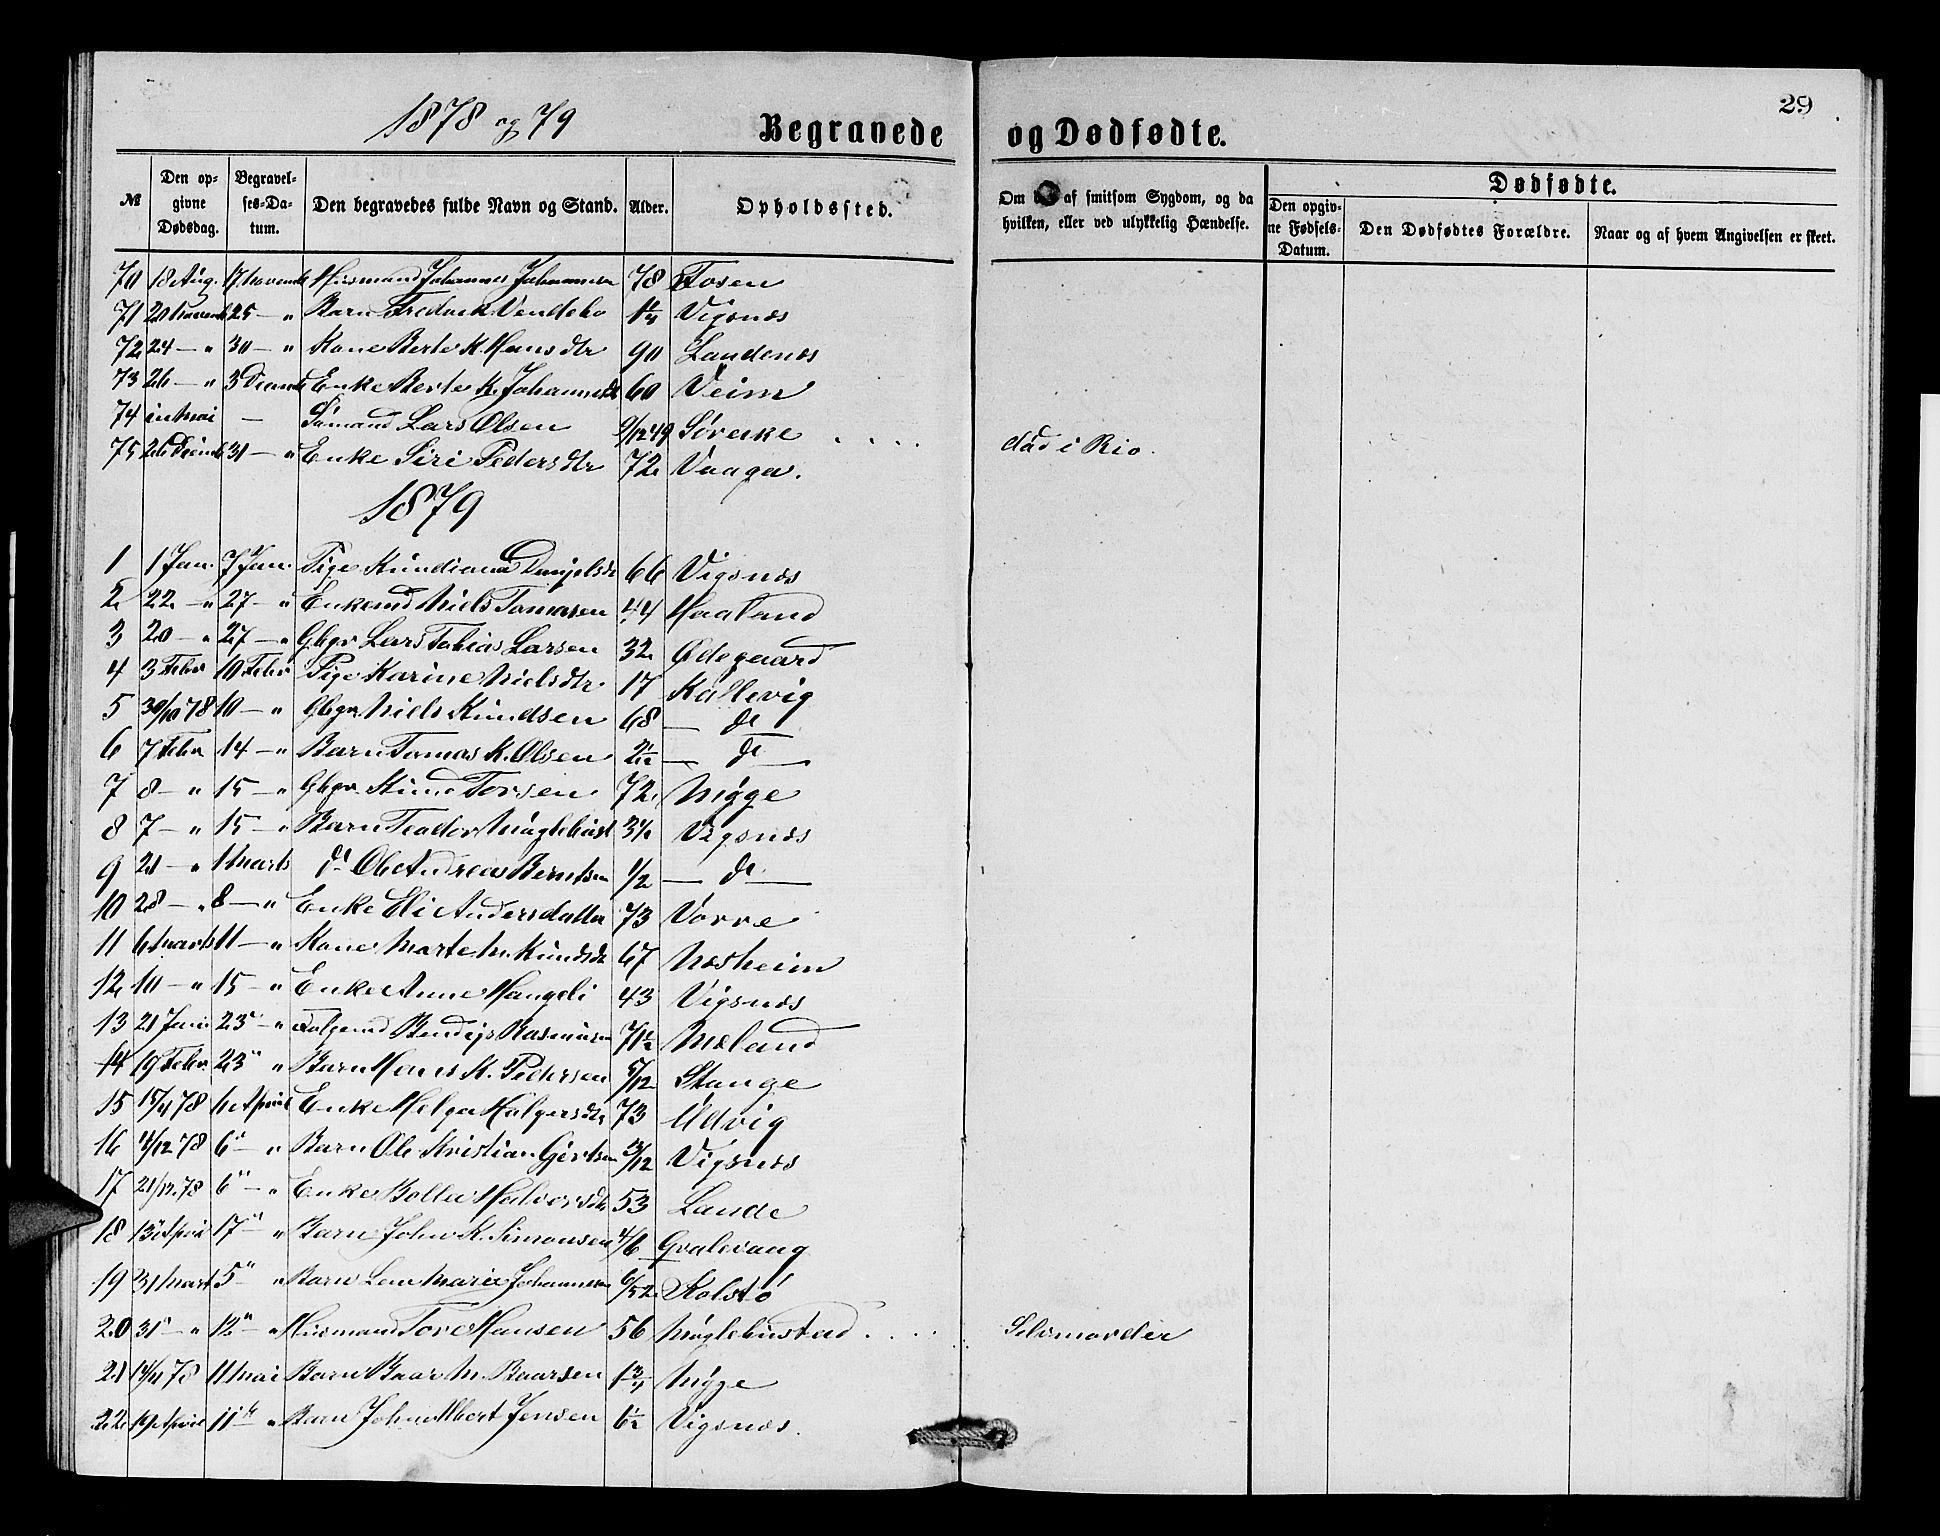 1878 og 79
Begravede og Dødfødte.
29
№ Den opgivne Dødsdag. Begravelses-Datum. Den begravedes fulde Navn og Stand. Alder. Opholdssted. Om af smitsom Sygdom, og da hvilken, eller ved ulykkelig Hændelse.
Dødfødte.
Den opgivne Fødsels-Datum. Den Dødfødtes Forældre. Naar og af hvem Angivelsen er skeet.
70 18 Aug. 17 Novemb Husmand Johannes Johannesen 78 Fosen
71 20 Novemb 25 — " Barn Fredrick Vendebo 1 1/4 Vigsnæs
72 24 — " 30 — " Kone Berte K. Hansdtr 90 Landenæs
73 26 — " 3 Decemb Enke Berte K. Johannesdt 60 Veim
74 i Mai — Sømand Lars Olsen 9/12 49 død i Rio.
75 26 Decemb 31 — " Enke Siri Pedersdtr 72 Vaaga.
1879
1 1 Jan. 7 Jan. Pige Kundiana 66 Vigsnæs
2 22 — " 27 — " Enkemd Niels Tomasen 44 Haaland
3 20 — " 27 — " Gbgr Lars Tobias Larsen 32 Ødegaard
4 3 Febr 10 Febr Pige Karine Nielsdtr 17 Kallevig
5 30/10 78 10 — " Gbgr Niels Knudsen 68 — do
6 7 Febr 14 — " Barn Tomas K. Olsen 2 1/2 — do —
7 8 — " 15 — " Gbgr Torsen 72 Nygge
8 7 — " 15 — " Barn Teodor 3 1/2 Vigsnæs
9 21 — " 1 Marts do Ole Andreas Berntsen 1/2 — do —
10 28 — " 8 — " Enke Eli Andersdatter 73 Vorre
11 6 Marts 11 — " Kone Marte M. Knudsdt 67 Næsheim
12 10 — " 15 — " Enke Anne Haugeli 43 Vigsnæs
13 21 23 — " Rasmusen 71 1/2 Mæland
14 19 Febr 23 " Barn Hans K. Pedersen 5/12 Stange
15 15/4 78 6 April Enke Helga Holgersdtr 73 Udvig
16 4/12 78 6 — " Barn Ole Kristian Gertsen Vigsnæs
17 21/12 78 6 — " Enke Halvorsdtr 53 Lande
18 13 April 17 — " Barn John K. Simonsen 4/6 Gvalevaag
19 31 Mart 5 " " Barn Marie Johannesen 6/52 Kolstø
20 31 — " 12 — " Husmand Tore Hansen 56 Møglebustad Selvmorder
21 13/11 78 11 Mai Barn Baar M. Baarsen 1 3/4 Nygge
22 19 April 11 — " Barn John Albert Jensen 6 1/2 Vigsnæs.